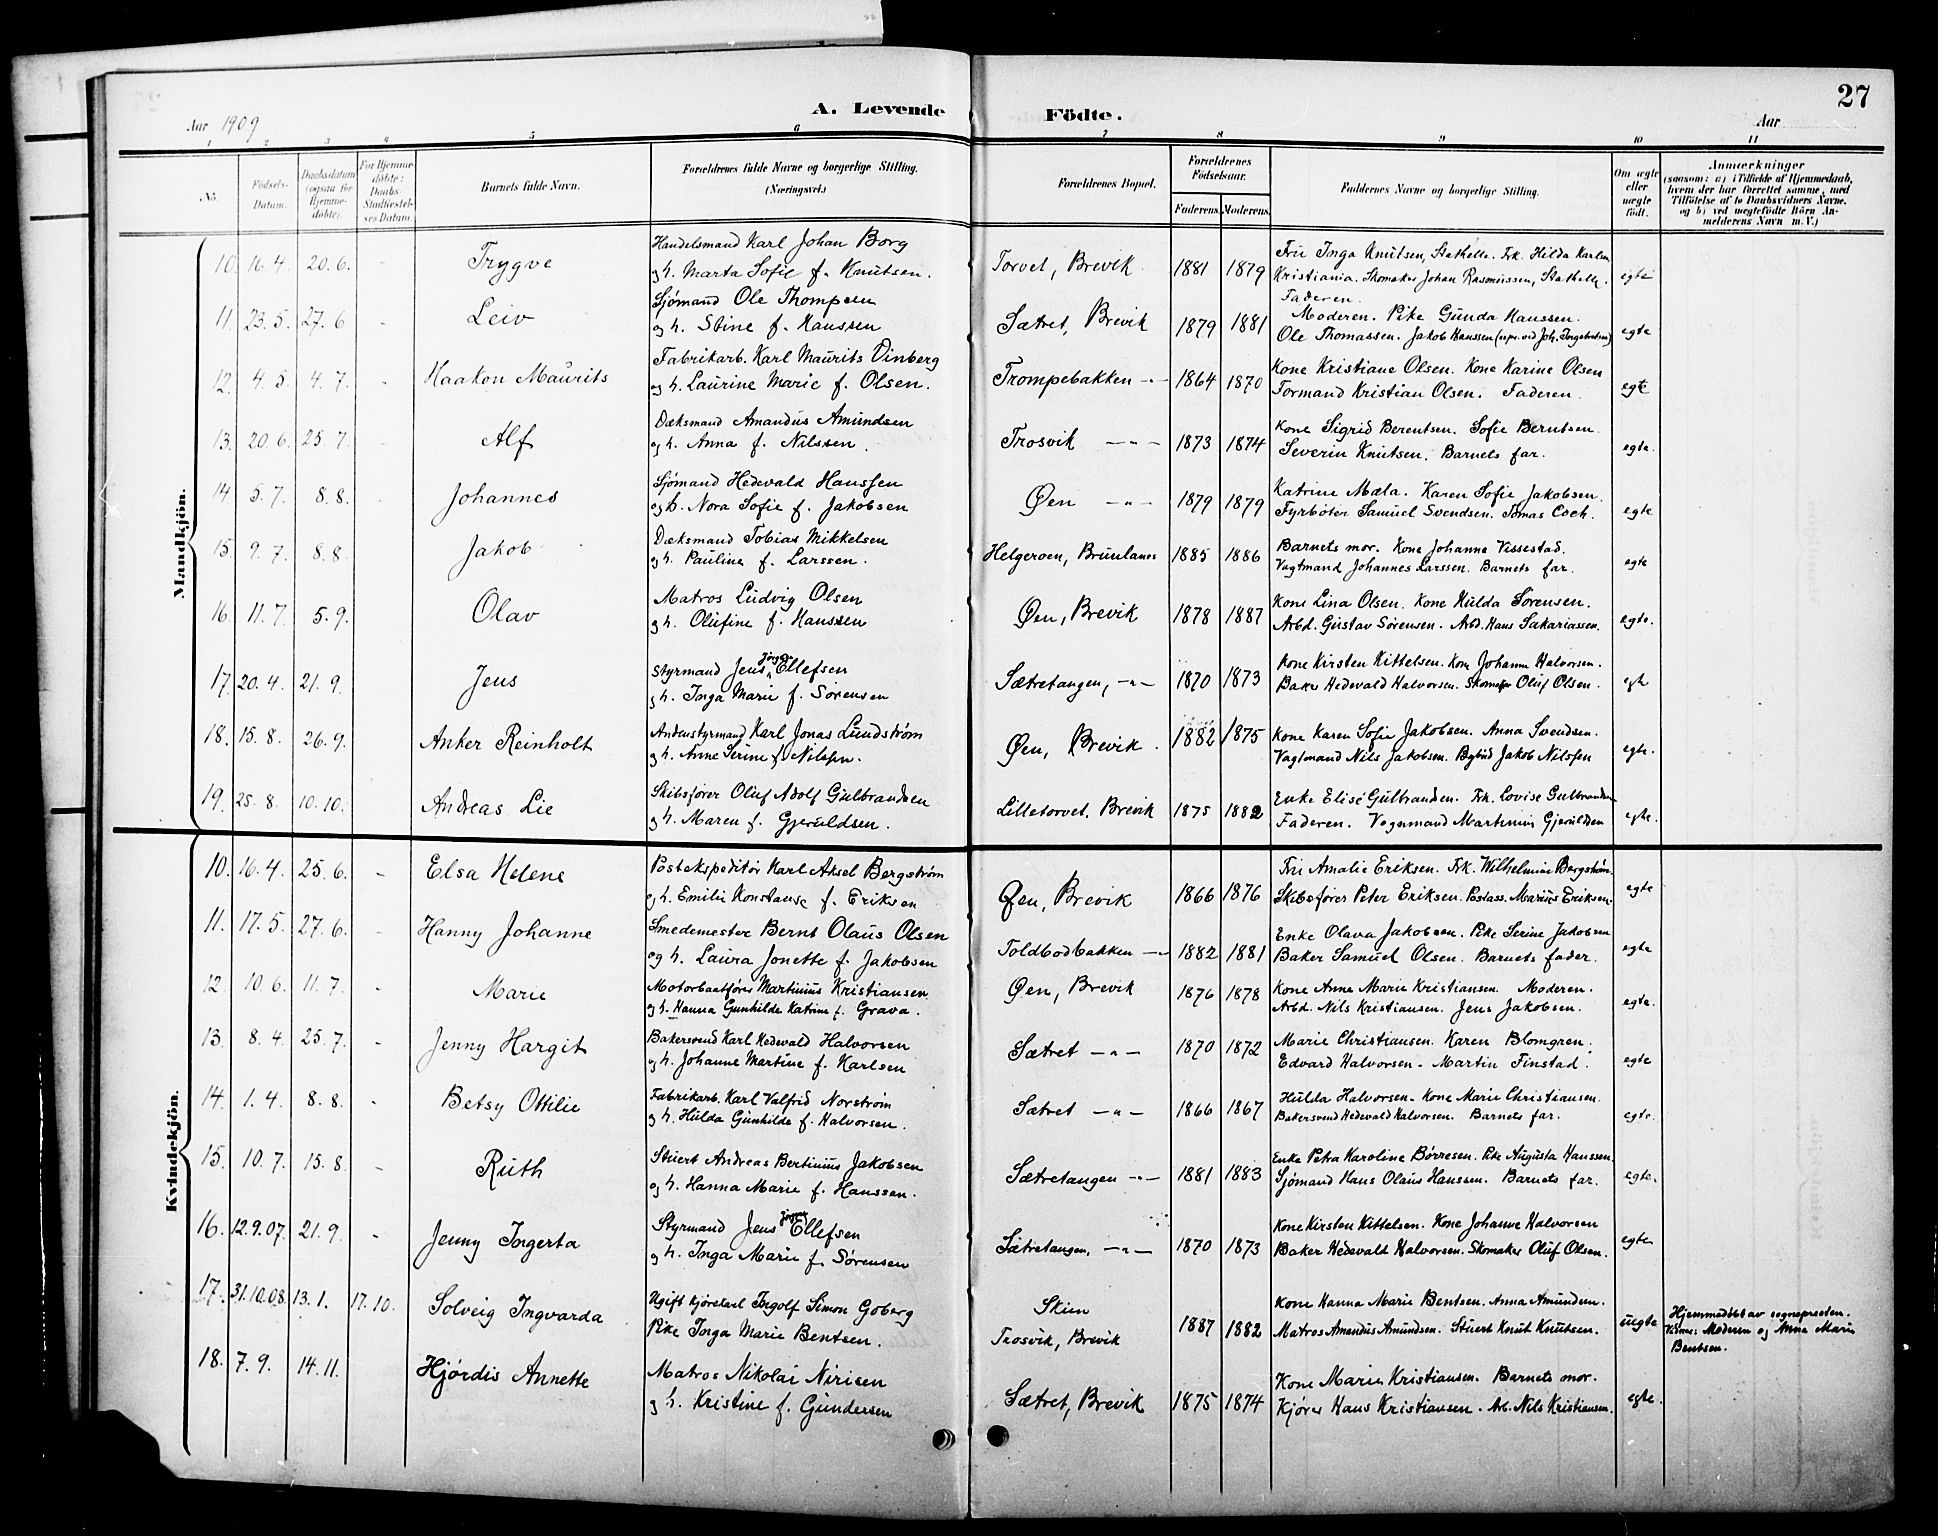 27
Aar 1909
A. Levende Födte.
Aar
1 2 3 4 5 6 7 8 9 10 11
No. Födsels-Datum. Daabsdatum (ogsaa for Hjemmedöbte). For Hjemmedöbte: Daabs-Stadfæstelses Datum. Barnets fulde Navn. Forældrenes fulde Navne og borgerlige Stilling. (Næringsvei.) Forældrenes Bopæl. Forældrenes Födselsaar. Faderens. Moderens. Faddernes Navne og borgerlige Stilling. Om ægte eller uægte födt. Anmærkninger (saasom: a) i Tilfælde af Hjemmedaab, hvem der har forrettet samme, med Tilföielse af to Daabsvidners Navne, og b) ved uægtefödte Börn Anmelderens Navn m. V.)
Mandkjön.
10. 16.4. 20.6. - Trygve Handelsmand Karl Johan Borg Torvet, Brevik. 1881 1879 Fru Inga Knutsen, Stathelle. Frk. Hilda Karlsen egte
og h. Marta Sofie f. Knutsen. Kristiania. Skomaker Johan Rasmussen, Stathelle.
Faderen.
11. 23.5. 27.6 - Leiv Sjømand Ole Thompsen Sætret, Brevik 1879 1881 Moderen. Pike Gunda Hanssen. egte
og h. Stine f. Hanssen Ole Thomassen. Jakob Hanssen (repr. ved Joh. Ingebretsen)
12. 4.5. 4.7. - Haakon Maurits Fabrikarb. Karl Maurits Vinberg Trompebakken -"- 1864 1870 Kone Kristiane Olsen. Kone Karine Olsen egte
og h. Laurine Marie f. Olsen. Formand Kristian Olsen. Faderen.
13. 20.6. 25.7. - Alf Dæksmand Amandus Amundsen Trosvik -"- 1873 1874 Kone Sigrid Berentsen. Sofie Berntsen. egte.
og h. Anna f. Nilssen. Severin Knutsen. Barnets far.
14 5.7. 8.8. - Johannes Sjømand Hedevald Hanssen Øen -"- 1879 1879 Katrine Mæla. Karen Sofie Jakobsen. egte
og h. Nora Sofie f. Jakobsen Fyrbøter Samuel Svendsen. Tomas Coch.
15. 9.7. 8.8. - Jakob Dæksmand Tobias Mikkelsen Helgeroen, Brunlanes 1885 1886 Barnets mor. Kone Johanne Vissestad. egte
og h. Pauline f. Larssen. Vagtmand Johannes Larssen. Barnets far.
16. 11.7. 5.9. Olav Matros Ludvig Olsen Øen, Brevik 1878 1887 Kone Lina Olsen. Kone Hulda Sørensen. egte.
og h. Olufine f. Hanssen Arbd. Gustav Sørensen. Arbd. Hans Sakariassen.
17. 20.4. 21.9. Jens Styrmand Jens Jørgen Ellefsen Sætretangen, -"- 1870 1873 Kone Kirsten Kittelsen. Kone Johanne Halvorsen. egte
og h. Inga Marie f. Sørensen Baker Hedevald Halvorsen. Skomaker Oluf Olsen.
18. 15.8. 26.9. Anker Reinholt Andenstyrmand Karl Jonas Lundstrøm Øen, Brevik. 1882 1875 Kone Karen Sofie Jakobsen. Anna Svendsen. egte.
og h. Anne Serine f. Nilssen. Vagtmand Nils Jakobsen. Bybud Jakob Nilssen
19. 25.8. 10.10. Andreas Lie Skibsfører Oluf Adolf Gulbrandsen Lilletorvet, Brevik 1875 1882 Enke Elise Gulbrandsen. Frk. Lovise Gulbrandsen egte.
og h. Maren f. Gjeruldsen. Faderen. Vognmand Martinius Gjeruldsen
Kvindekjön.
10. 16.4. 25.6. - Elsa Helene Postekspeditør Karl Aksel Bergstrøm Øen, Brevik 1866 1876 Fru Amalie Eriksen. Frk. Wilhelmine Bergstrøm. egte
og h. Emilie Konstanse f. Eriksen Skibsfører Peter Eriksen. Postass. Marius Eriksen.
11. 17.5. 27.6. - Hanny Johanne Smedemester Bernt Olaus Olsen Toldbodbakken -"- 1882 1881 Enke Olava Jakobsen. Pike Serine Jakobsen egte
og h. Laura Jonette f. Jakobsen Baker Samuel Olsen. Barnets fader.
12. 10.6. 11.7. - Marie Motorbaatfører Martinius Kristiansen Øen, Brevik 1876 1878 Kone Anne Marie Kristiansen. Moderen. egte.
og h. Hanna Gunhilde Katrine f. Grava. Arbd. Nils Kristiansen. Jens Jakobsen.
13. 8.4. 25.7. - Jenny Hargit Bakersvend Karl Hedevald Halvorsen Sætret -"- 1870 1872 Marie Christiansen. Karen Blomgren. egte
og h. Johanne Martine f. Karlsen Edvard Halvorsen. Martin Finstad.
14. 1.4. 8.8. - Betsy Ottilie Fabrikarb. Karl Valfrid Norstrøm Sætret -"- 1866 1867 Hulda Halvorsen. Kone Marie Christiansen. egte.
og h. Hulda Gunhilde f. Halvorsen. Bakersvend Hedevald Halvorsen. Barnets far.
15. 10.7. 15.8. - Ruth Stuert Andreas Bertinius Jakobsen Sætretangen -"- 1881 1883 Enke Petra Karoline Børresen. Pike Augusta Hanssen. egte.
og h. Hanna Marie f. Hanssen. Sjømand Hans Olaus Hanssen. Barnets far.
16. 12.9.07. 21.9. - Jenny Ingerta Styrmand Jens Jørgen Ellefsen Sætretangen, -"- 1870 1873 Kone Kirsten Kittelsen. Kone Johanne Halvorsen egte
og h. Inga Marie f. Sørensen Baker Hedevald Halvorsen. Skomaker Oluf Olsen.
17. 31.10.08. 13.1. 17.10. Solveig Ingvarda Ugift kjørekarl Ingolf Simon Goberg Skien 1887 1882 Kone Hanna Marie Bentsen. Anna Amundsen. uegte Hjemmedøbt av sognepresten.
Pike Inga Marie Bentsen. Trosvik, Brevik Matros Amandus Amundsen. Stuert Knut Knutsen. Vidner: Moderen og Anna Marie Bentsen.
18. 7.9. 14.11. Hjørdis Annette Matros Nikolai Nirisen Sætret, Brevik 1875 1874 Kone Marie Kristiansen. Barnets mor. egte.
og h. Kristine f. Gundersen Kjører Hans Kristiansen. Arb. Nils Kristiansen.